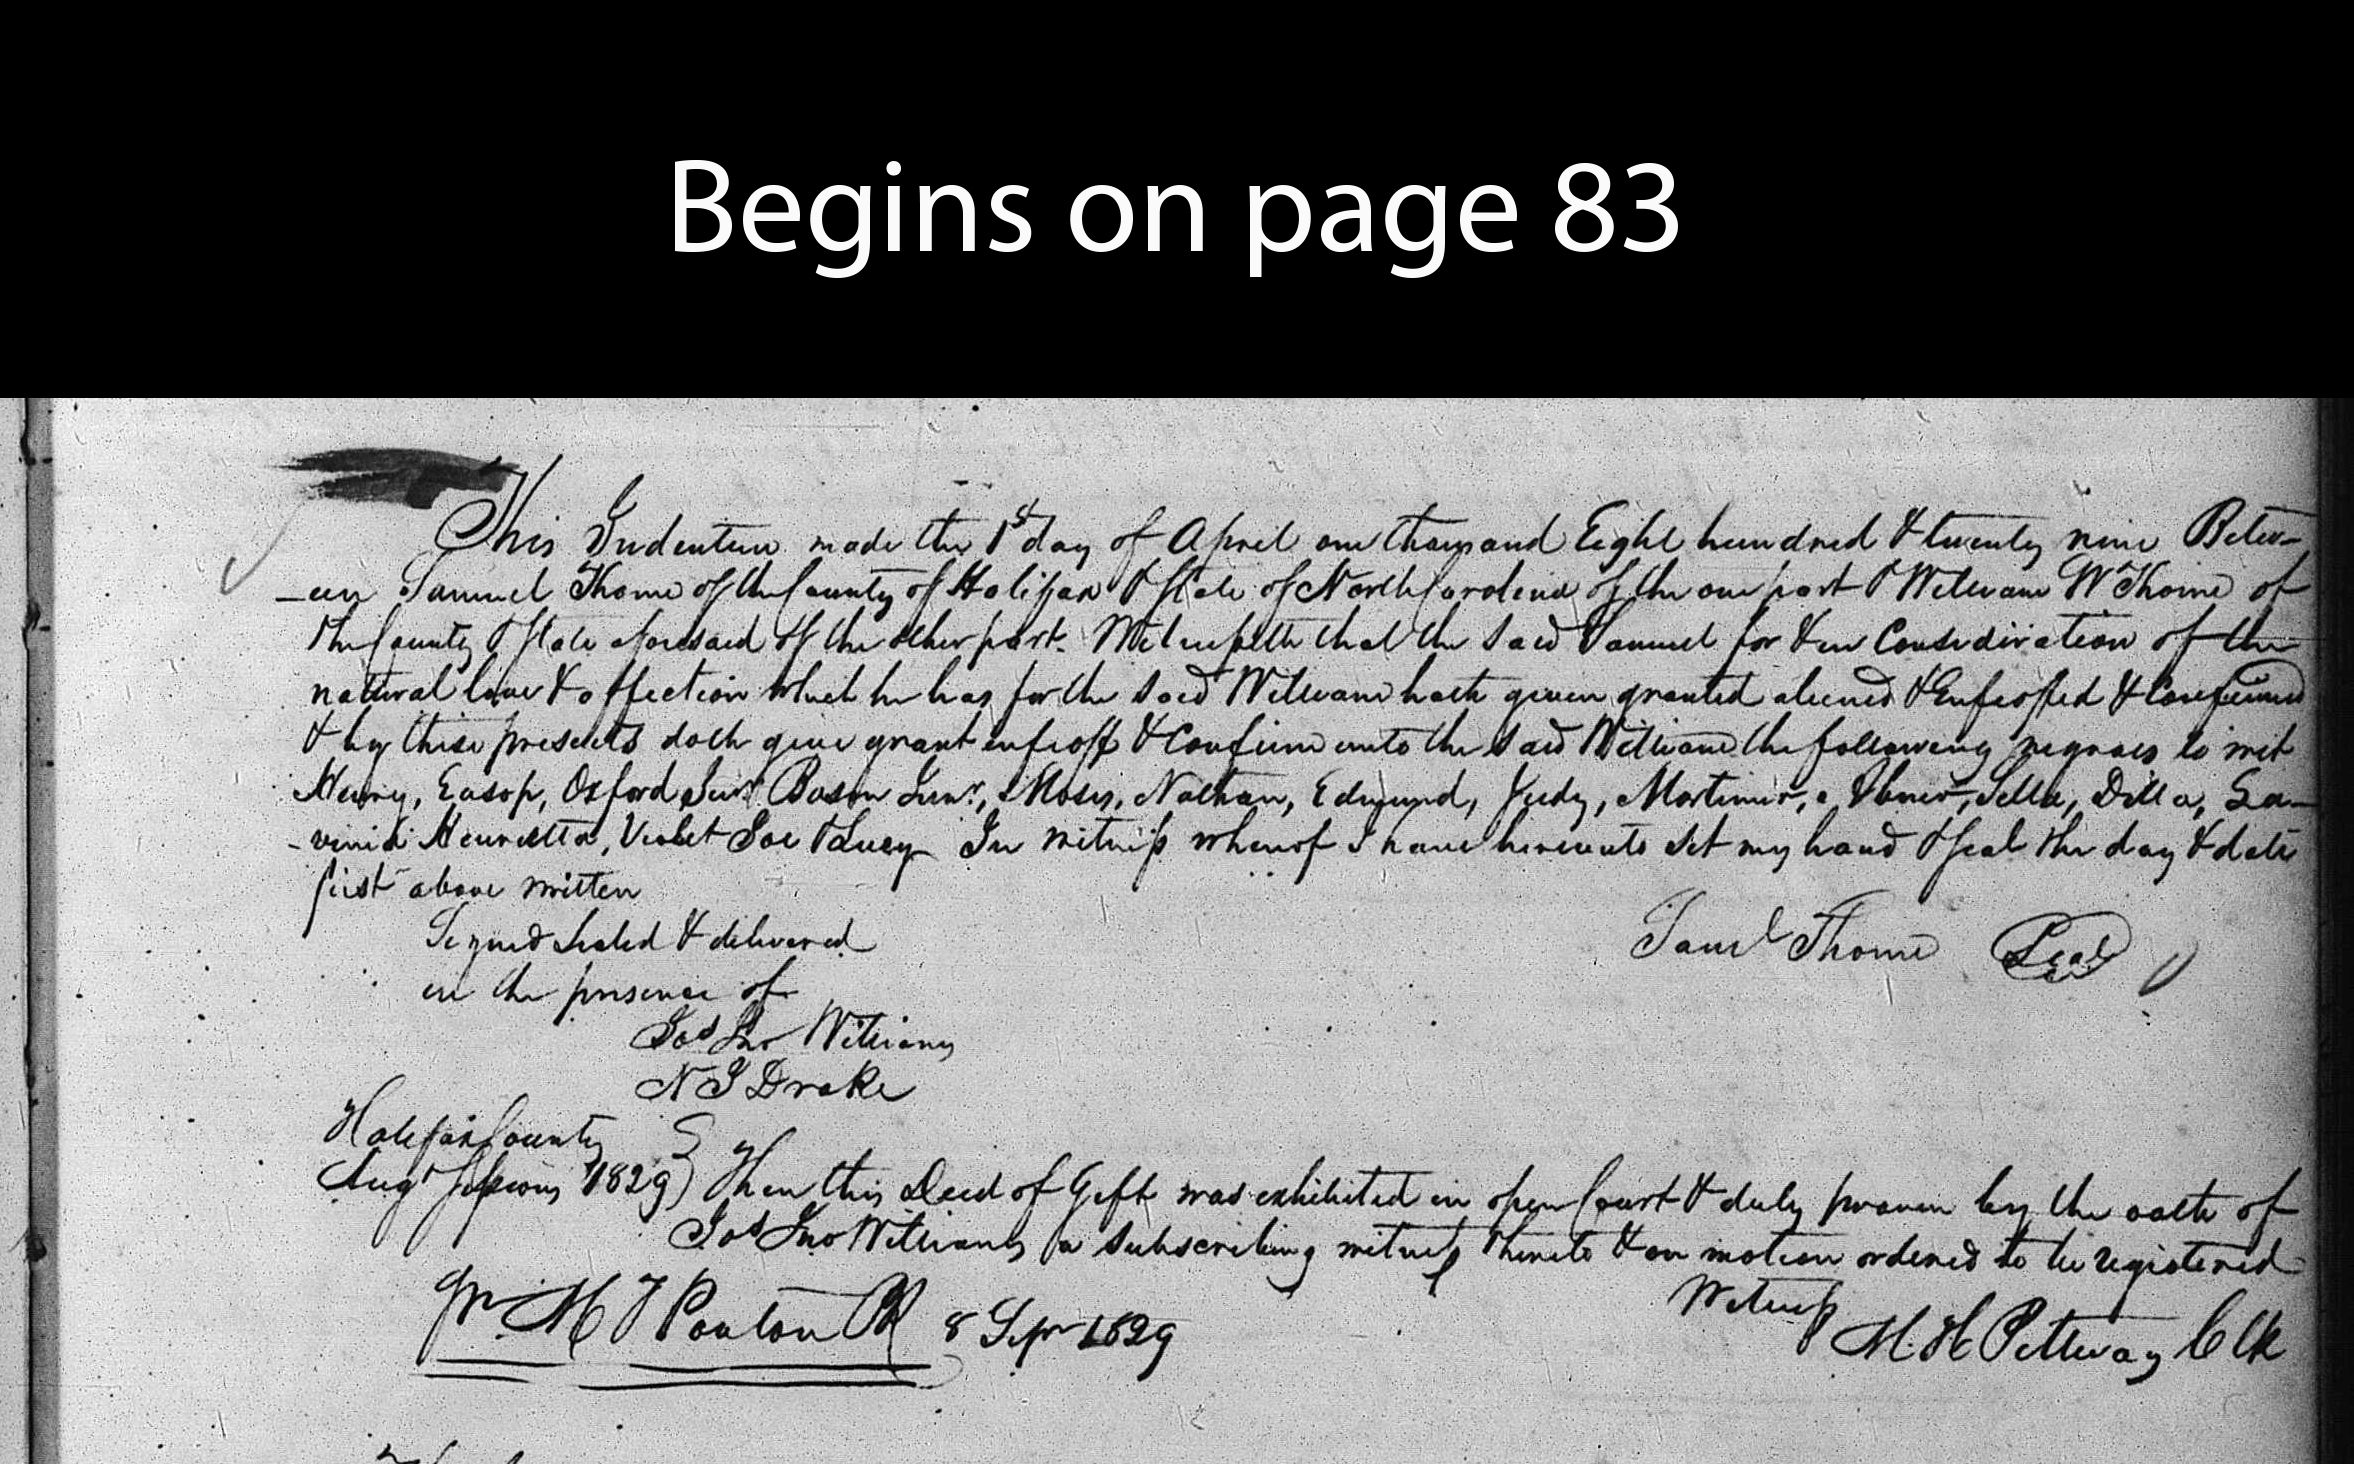 Begins on page 83
This Indenture made the 1st day of April one thousand Eight hundred & twenty nine Betw-
-een Samuel Thorne of the County of Halifax & State of North Carolina of the one part & William W Thorne of
the County & State aforesaid of the other part. Witnesseth that the said Samuel for & in Consideration of the
natural love & affection which he has for the said William hath given granted aliened & Enfeoffed & Confirmed
& by these presents doth give grant enfeoff & Confirm unto the said William the following negroes to wit
Henry, Easop, Oxford Junr. Boson Junr., Moses, Nathan, Edmund, Judy, Mortimer, Abner, Sella, Dilla, La-
-vinia Henrietta, Violet Joe & Lucy In witness whereof I have hereunto set my hand & seal the day & date
first above written
Signed sealed & delivered
Saml Thorne Seal
in the presence of
Jos Jno Williams
N J Drake
Halifax County
Augt Sessions 1829) Then this Deed of Gift was exhibited in open Court & duly proven by the oath of
Jos Jno Williams a subscribing witness thereto & on motion ordered to be registered
Witness
M. H Pettway Clk
Pr. M T Ponton PR 8 Sepr 1829